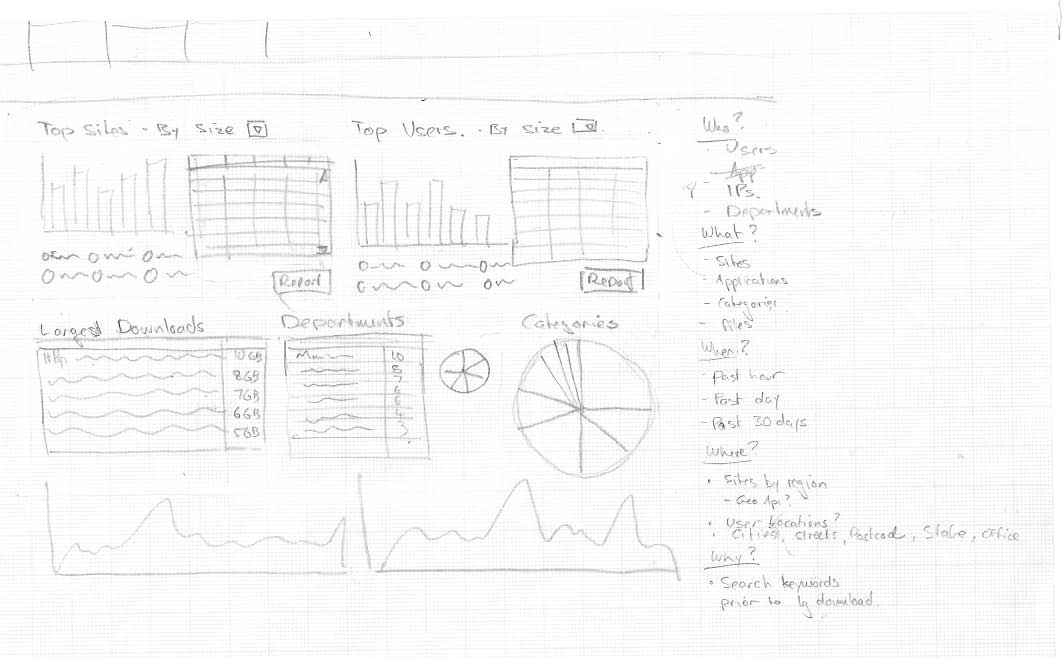 Top Sites - By Size
Top Users. - By size
Report
Report
Largest Downloads
10GB
8GB
7GB
6GB
5GB
Departments
10
8
7
6
5
4
3
Categories
Who?
- Users
- App
IPs.
- Departments
What?
- Sites
- Applications
- Categories
- Files
When?
- Past hour
- Past day
- Past 30 days
Where?
• Sites by region
- Geo Api?
• User Locations?
• Cities, streets, Postcode, State, office
Why?
• Search keywords
prior to lg download.